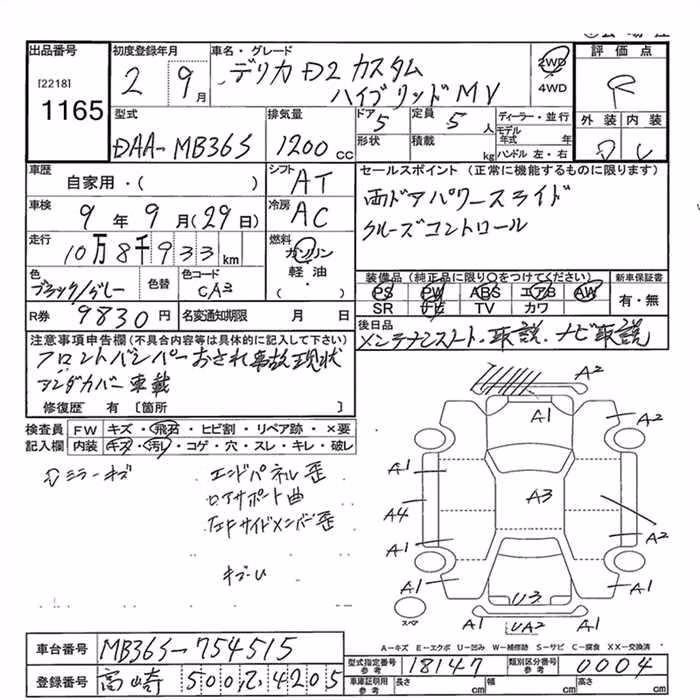 出品番号
[2218]
1165
初度登録年月
2 9月
車名・グレード
デリカ D2 カスタム
ハイブリッド MV
2WD
4WD
評価点
R
外装 内装
D
型式
DAA-MB36S
排気量
1200 cc
ドア 5
定員 5人
形状
積載 kg
ディーラー・並行
モデル年式 年
ハンドル 左・右
車歴
自家用・( )
シフト AT
車検 9年 9月(29日)
冷房 AC
走行 10万8千933 km
燃料
ガソリン
軽油・
( )
色 ブラック/グレー
色替
色コード CA3
R券 9830円
名変通知期限 月 日
セールスポイント(正常に機能するものに限ります)
両ドアパワースライド
クルーズコントロール
装備品(純正品に限り○をつけてください)
PS PW ABS エアB AW
SR ナビ TV カワ
新車保証書
有・無
後日品
メンテナンスノート・取説・ナビ取説
注意事項申告欄(不具合内容等は具体的に記入して下さい)
フロントバンパーおされ事故現状
アンダカバー車載
修復歴 有〔箇所 〕
検査員記入欄
FW キズ・飛石・ヒビ割・リペア跡・×要
内装 キズ・汚れ・コゲ・穴・スレ・キレ・破レ
ミラーキズ
エンドパネル歪
ロアサポート曲
左Fサイドメンバー歪
A2
A1
A2
A1
A4
A3
A1
A2
A1
A1
U3
A1
UA2
A1
スペア
A-キズ E-エクボ U-凹み W-補修跡 S-サビ C-腐食 XX-交換済
車台番号 MB36S-754515
登録番号 高崎 500 て 4205
型式指定番号 参考 18147
類別区分番号 参考 0004
車庫証明用 参考 長さ cm 幅 cm 高さ cm